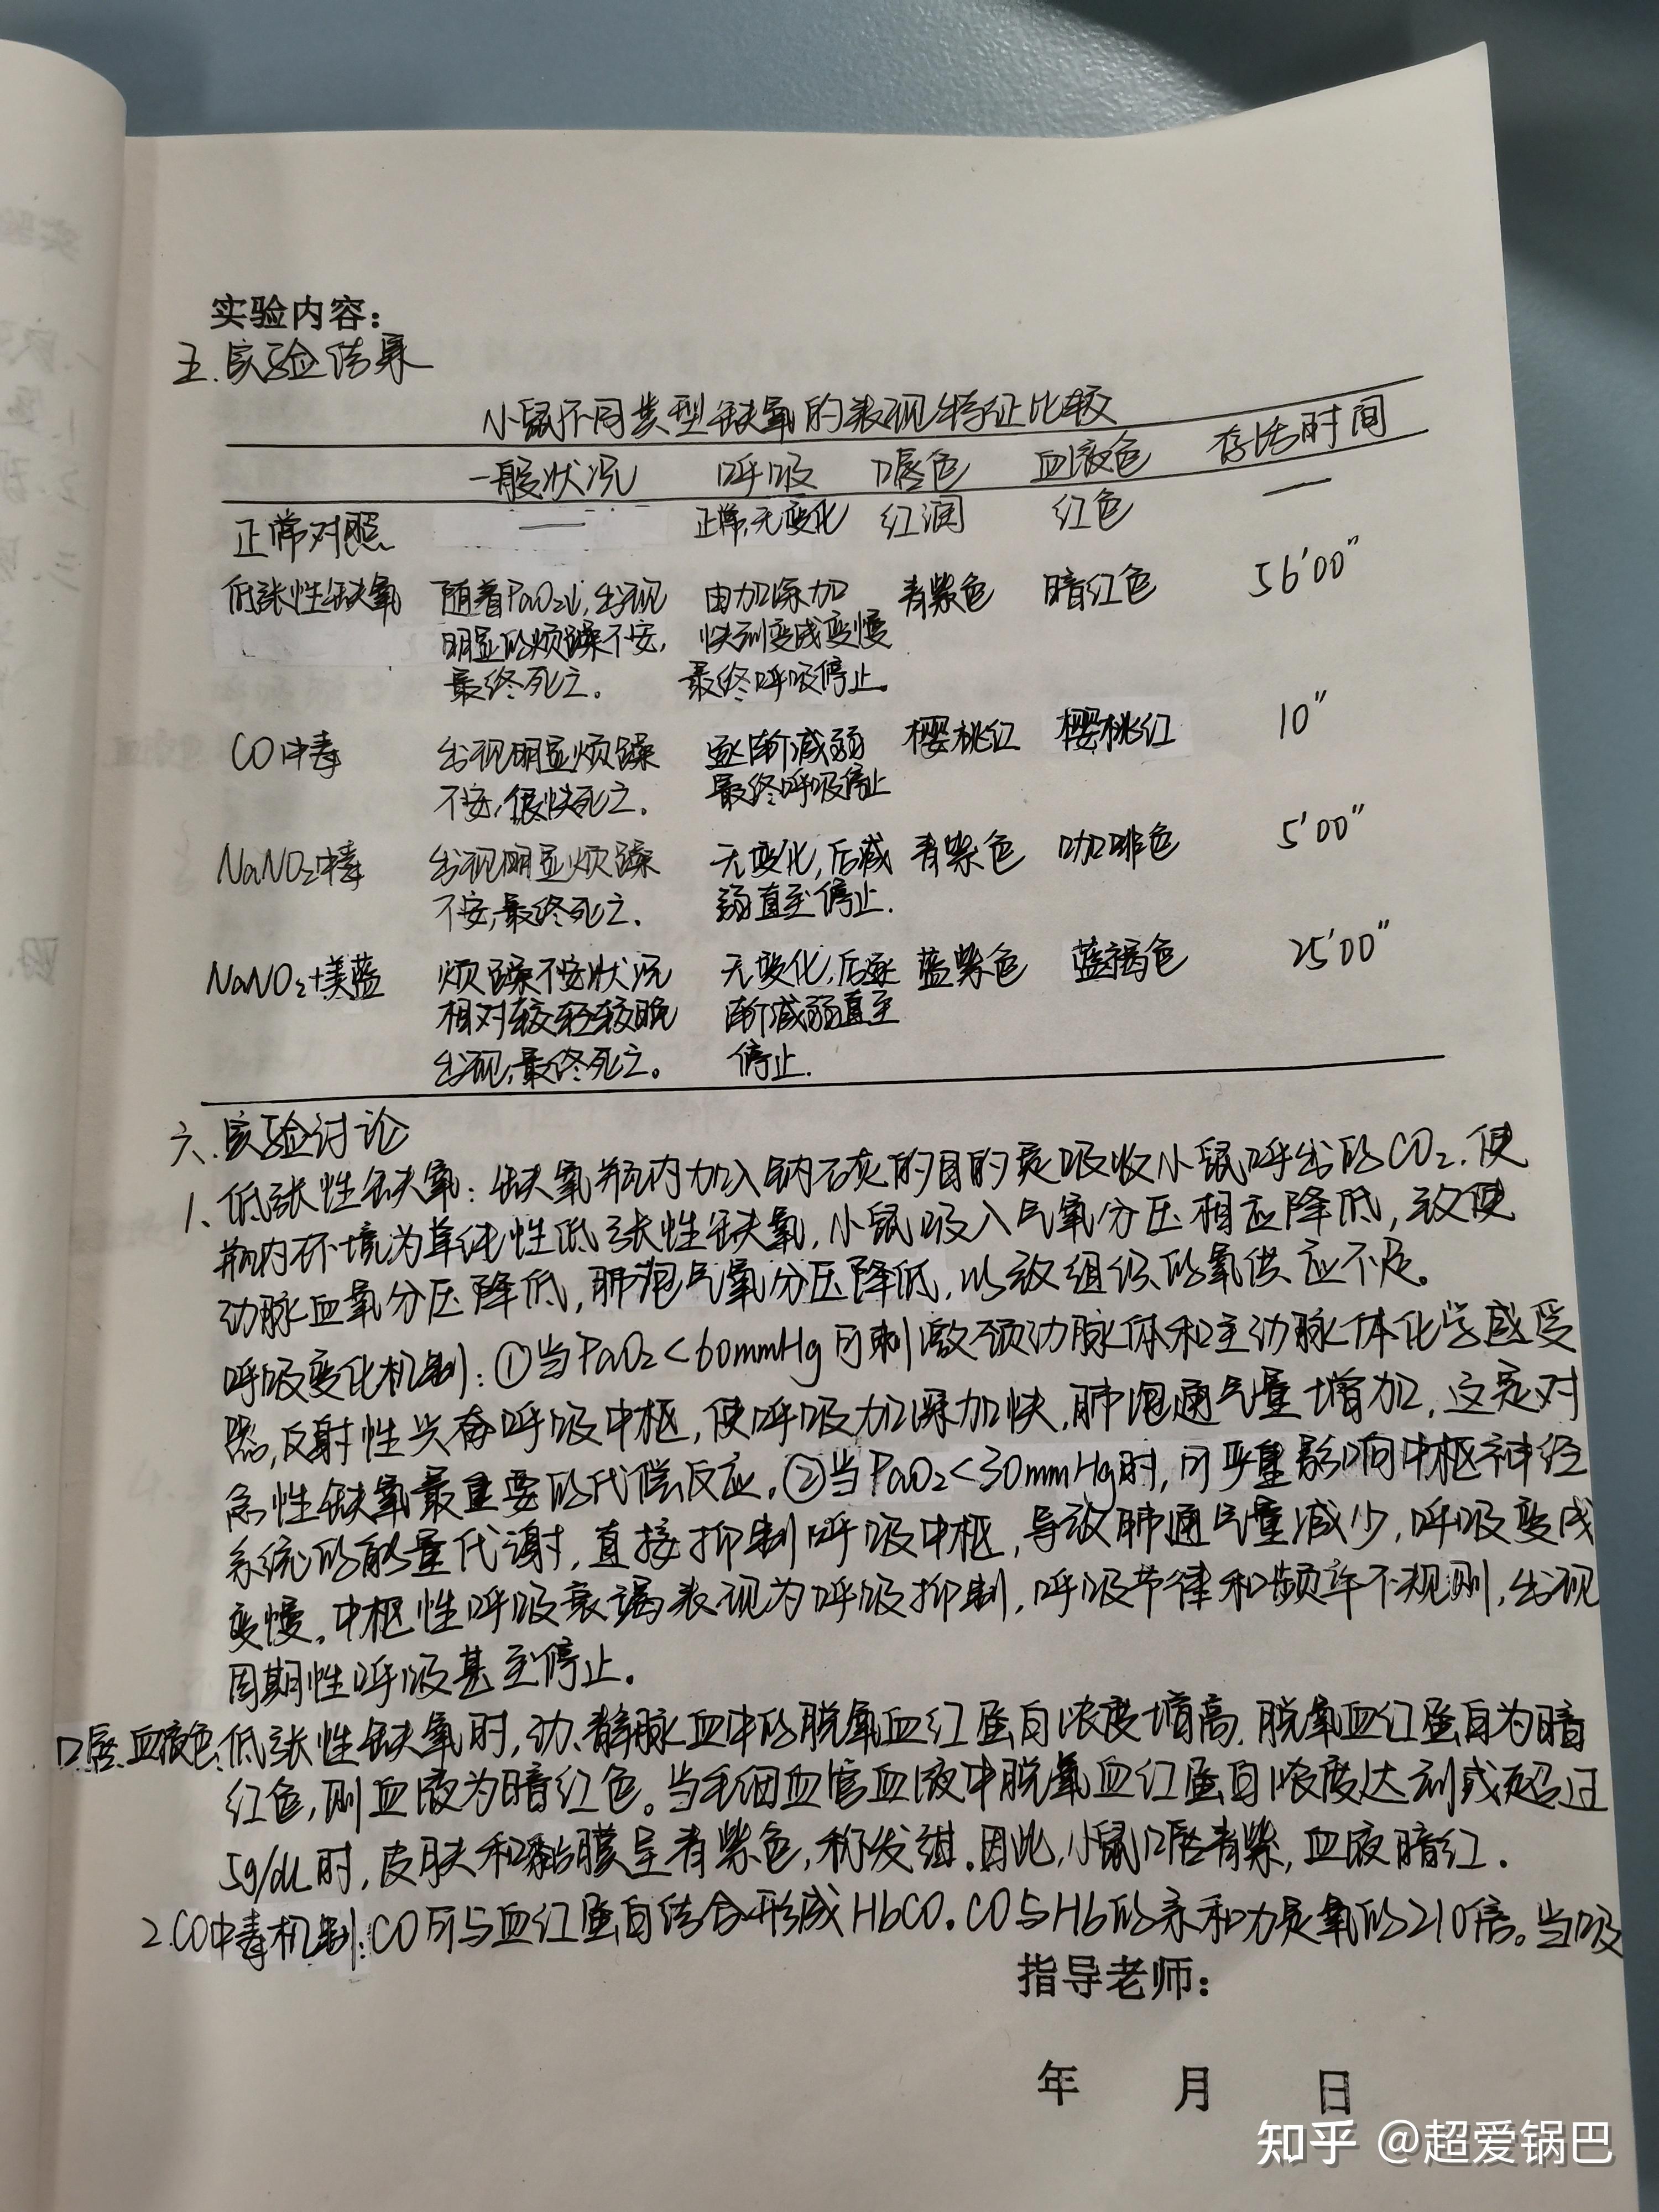 实验内容：
五.实验结果
小鼠不同类型缺氧的表现特征比较
一般状况 呼吸 口唇色 血液色 存活时间
正常对照 — 正常,无变化 红润 红色 —
低张性缺氧 随着PaO₂↓,出现 由加深加 青紫色 暗红色 56′00″
明显的烦躁不安, 快到变成变慢
最终死亡. 最终呼吸停止.
CO中毒 出现明显烦躁 逐渐减弱 樱桃红 樱桃红 10″
不安,很快死亡. 最终呼吸停止
NaNO₂中毒 出现明显烦躁 无变化,后减 青紫色 咖啡色 5′00″
不安,最终死亡. 弱直至停止.
NaNO₂+美蓝 烦躁不安状况 无变化,后逐 蓝紫色 蓝褐色 25′00″
相对较轻较晚 渐减弱直至
出现,最终死亡。 停止.
六.实验讨论
1、低张性缺氧：缺氧瓶内加入钠石灰的目的是吸收小鼠呼出的CO₂.使
瓶内环境为单纯性低张性缺氧,小鼠吸入气氧分压相应降低,致使
动脉血氧分压降低,肺泡气氧分压降低,以致组织的氧供应不足。
呼吸变化机制：①当PaO₂<60mmHg可刺激颈动脉体和主动脉体化学感受
器,反射性兴奋呼吸中枢,使呼吸加深加快,肺泡通气量增加,这是对
急性缺氧最重要的代偿反应.②当PaO₂<30mmHg时,可严重影响中枢神经
系统的能量代谢,直接抑制呼吸中枢,导致肺通气量减少,呼吸变成
变慢。中枢性呼吸衰竭表现为呼吸抑制,呼吸节律和频率不规则,出现
周期性呼吸甚至停止.
口唇、血液色:低张性缺氧时,动、静脉血中的脱氧血红蛋白浓度增高,脱氧血红蛋白为暗
红色,则血液为暗红色。当毛细血管血液中脱氧血红蛋白浓度达到或超过
5g/dL时,皮肤和黏膜呈青紫色,称发绀.因此,小鼠口唇青紫,血液暗红.
2.CO中毒机制:CO可与血红蛋白结合形成HbCO.CO与Hb的亲和力是氧的210倍。当吸
指导老师：
年 月 日
知乎 @超爱锅巴